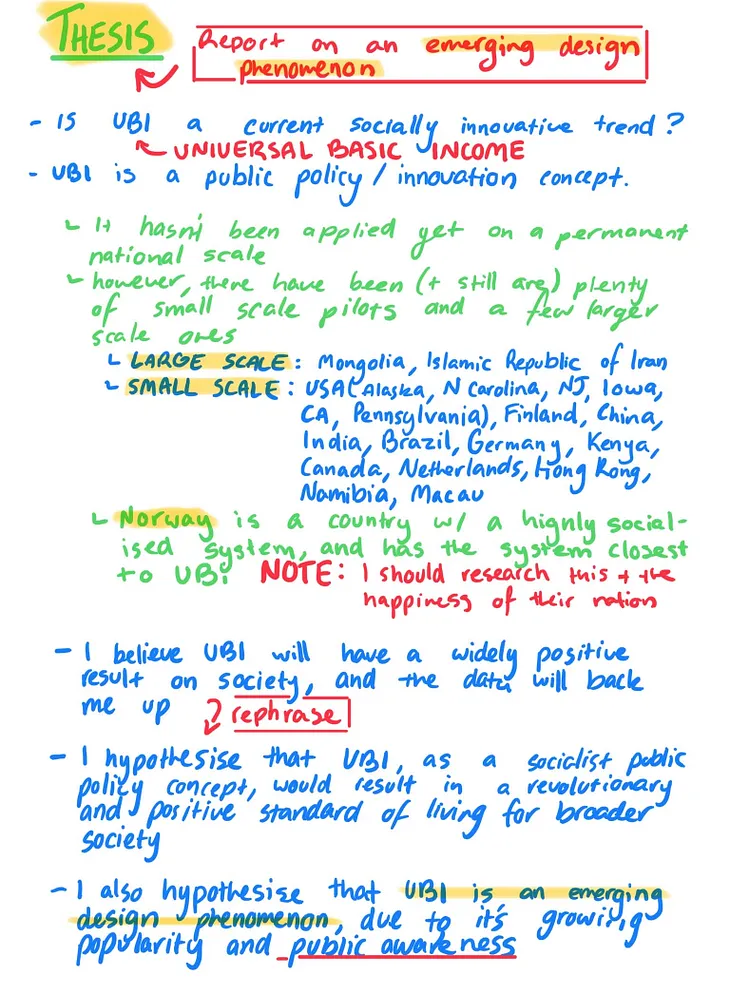 THESIS
Report on an emerging design
phenomenon
- IS UBI a current socially innovative trend?
UNIVERSAL BASIC INCOME
- UBI is a public policy / innovation concept.
It hasn't been applied yet on a permanent
national scale
however, there have been (+ still are) plenty
of small scale pilots and a few larger
scale ones
LARGE SCALE: Mongolia, Islamic Republic of Iran
SMALL SCALE: USA (Alaska, N Carolina, NJ, Iowa,
CA, Pennsylvania), Finland, China,
India, Brazil, Germany, Kenya,
Canada, Netherlands, Hong Kong,
Namibia, Macau
Norway is a country w/ a highly social-
ised system, and has the system closest
to UBI. NOTE: I should research this + the
happiness of their nation
- I believe UBI will have a widely positive
result on society, and the data will back
me up rephrase
- I hypothesise that UBI, as a socialist public
policy concept, would result in a revolutionary
and positive standard of living for broader
society
- I also hypothesise that UBI is an emerging
design phenomenon, due to it's growing
popularity and public awareness